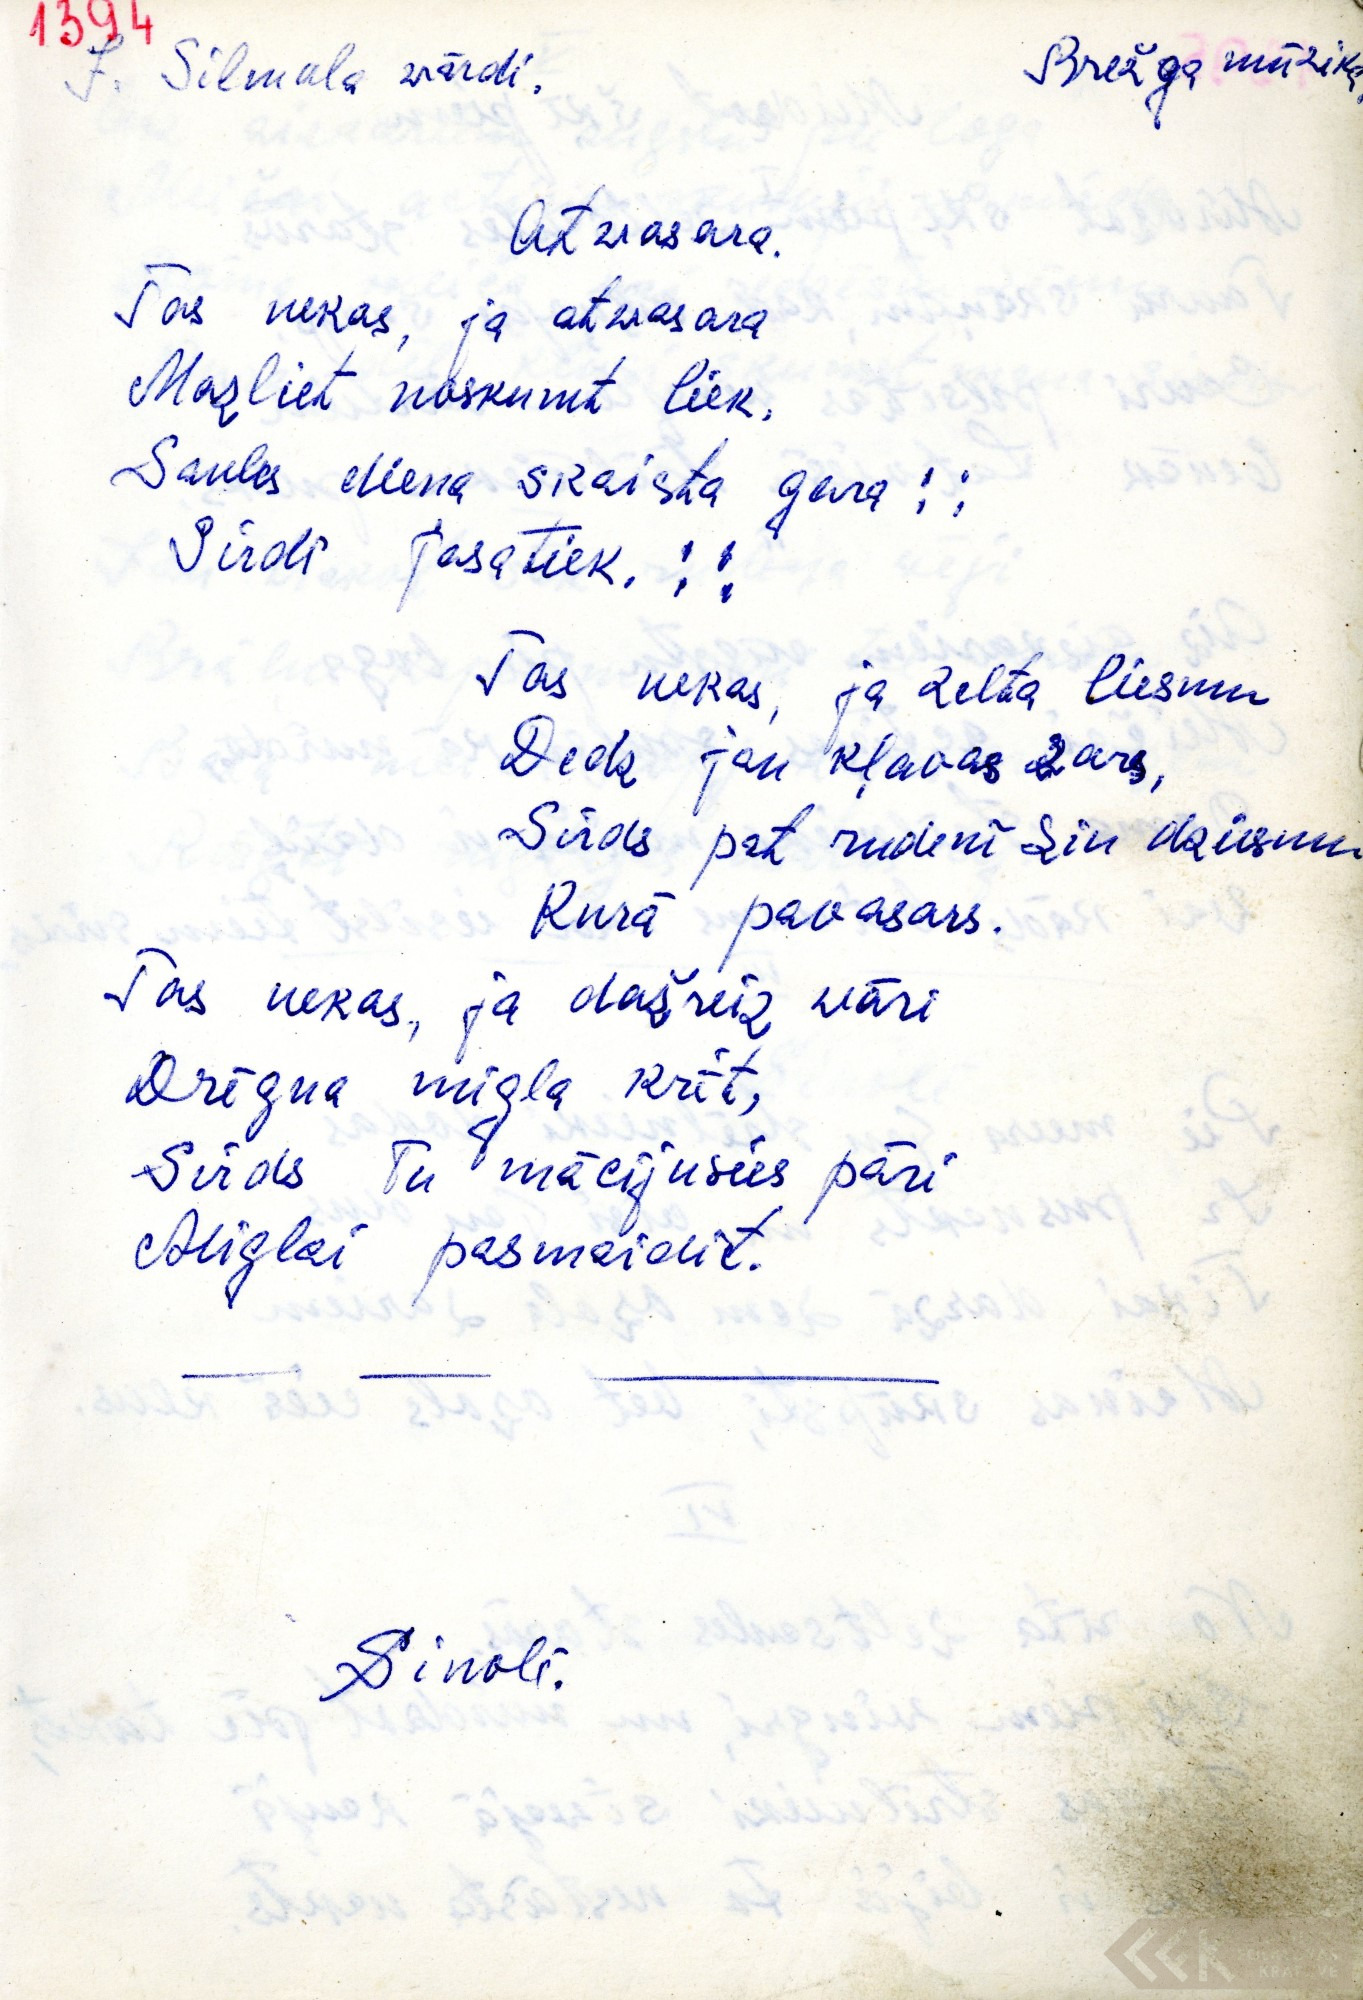 1394
J. Silmala vārdi.
Brežģa mūzika,
Atvasara.
Tas nekas, ja atvasara
Mazliet noskumt liek,
Saules diena skaista gara ! !
Sirdī jāsatiek. ! !
Tas nekas, ja zelta liesmu
Dedz jau kļavas zars,
Sirds pat rudenī zin dziesmu
Kurā pavasars.
Tas nekas, ja dažreiz vāri
Drēgna migla krīt,
Sirds Tu mācījusies pāri
Miglai pasmaidīt.
Sinolē.